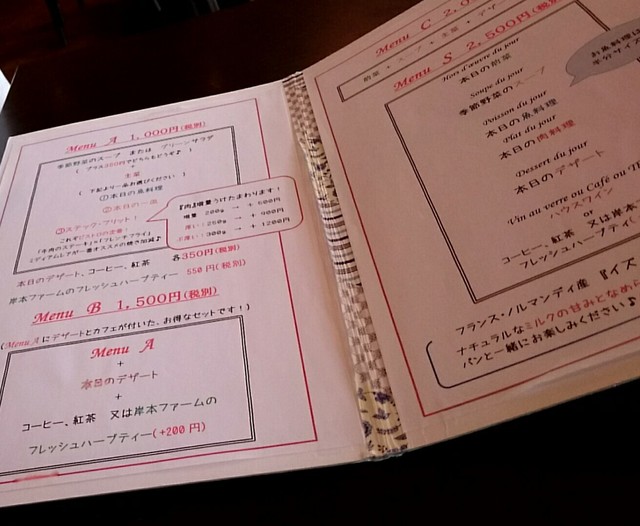 Menu A 1,000円(税別)
季節野菜のスープ または グリーンサラダ
( プラス350円でどちらもどうぞ♪ )
+
主菜
( 下記より一品お選びください )
①本日の魚料理
②本日の一皿
③ステック・フリット!
これぞビストロの定番!
「牛肉のステーキ」と「フレンチフライ」
ミディアムレアが一番オススメの焼き加減♪
『肉』増量うけたまわります!
増量 200g → + 600円
250g → + 900円
300g → + 1200円
本日のデザート、コーヒー、紅茶 各350円(税別)
岸本ファームのフレッシュハーブティー 550円(税別)
Menu B 1,500円(税別)
(Menu Aにデザートとカフェが付いた、お得なセットです!)
Menu A
+
本日のデザート
+
コーヒー、紅茶 又は岸本ファームの
フレッシュハーブティー(+200円)
Menu C 2,0
前菜・スープ・主菜・デザ
Menu S 2,500円(税別
Hors d'œuvre du jour
本日の前菜
Soupe du jour
季節野菜のスープ
Poisson du jour
本日の魚料理
Plat du jour
本日の肉料理
Dessert du jour
本日のデザート
Vin au verre ou Café ou T
ハウスワイン
or
コーヒー、紅茶 又は岸本
フレッシュハーブティ
お魚料理は
半分サイズ
フランス・ノルマンディ産 『イズ
ナチュラルなミルクの甘みとなめら
パンと一緒にお楽しみくださいま